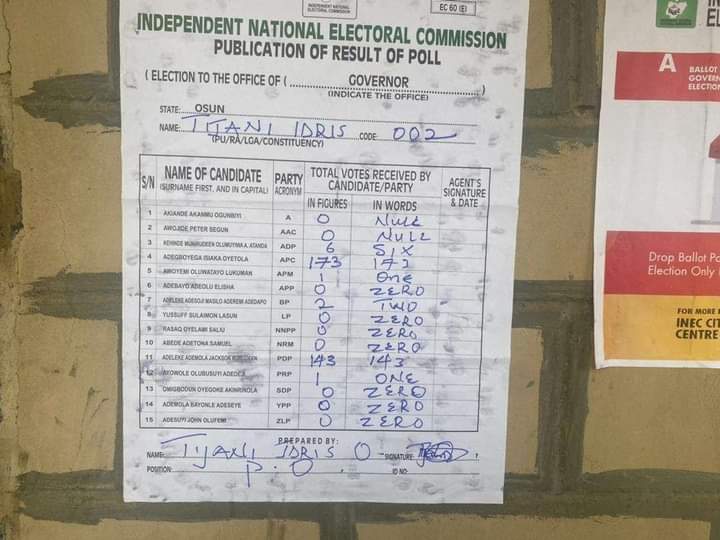 INDEPENDENT NATIONAL ELECTORAL COMMISSION
EC 60 (E)
INDEPENDENT NATIONAL ELECTORAL COMMISSION
PUBLICATION OF RESULT OF POLL
( ELECTION TO THE OFFICE OF ( GOVERNOR )
(INDICATE THE OFFICE)
STATE: OSUN
NAME: TIJANI IDRIS CODE: 002
(PU/RA/LGA/CONSTITUENCY)
S/N NAME OF CANDIDATE (SURNAME FIRST, AND IN CAPITAL) PARTY ACRONYM TOTAL VOTES RECEIVED BY CANDIDATE/PARTY AGENT'S SIGNATURE & DATE
IN FIGURES IN WORDS
1 AKANDE AKANMU OGUNBIYI A 0 NULL
2 AWOJIDE PETER SEGUN AAC 0 NULL
3 KEHINDE MUNIRUDEEN OLUMUYIWA A. ATANDA ADP 6 SIX
4 ADEGBOYEGA ISIAKA OYETOLA APC 173 173
5 AWOYEMI OLUWATAYO LUKUMAN APM 1 One
6 ADEBAYO ADEOLU ELISHA APP 0 ZERO
7 ADELEKE ADESOJI MASILO ADEREMI ADEDAPO BP 2 TWO
8 YUSSUFF SULAIMON LASUN LP 0 ZERO
9 RASAQ OYELAMI SALIU NNPP 0 ZERO
10 ABEDE ADETONA SAMUEL NRM 0 ZERO
11 ADELEKE ADEMOLA JACKSON PDP 143 143
12 AKOWOLE OLUBUSUYI ADEDEJI PRP 1 ONE
13 OMIGBODUN OYEGOKE AKINRINOLA SDP 0 ZERO
14 ADEMOLA BAYONLE ADESEYE YPP 0 ZERO
15 ADESUYI JOHN OLUFEMI ZLP 0 ZERO
PREPARED BY:
NAME: TIJANI IDRIS O SIGNATURE
POSITION: P.O ID NO:
A BALLOT
GOVERN
ELECTION
Drop Ballot Pa
Election Only
FOR MORE
INEC CIT
CENTRE